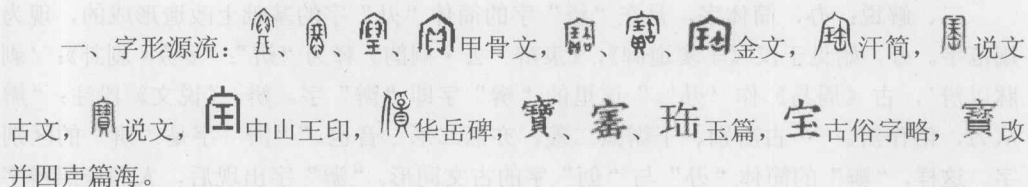 字形源流：甲骨文，金文，汗简，说文
古文，说文，中山王印，华岳碑，寶 珤玉篇，宝古俗字略，寳改
并四声篇海。